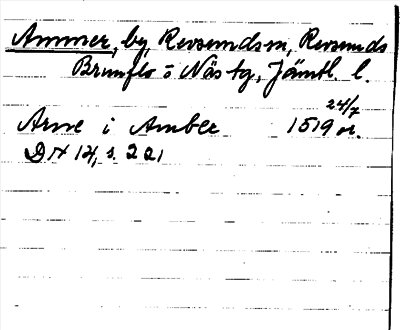 Ammer, by, Revsundsn, Revsunds
Brunflo o Näs tg, Jämtl. l.
Arne i Amber 1519 24/7 or.
DN 14, s. 221